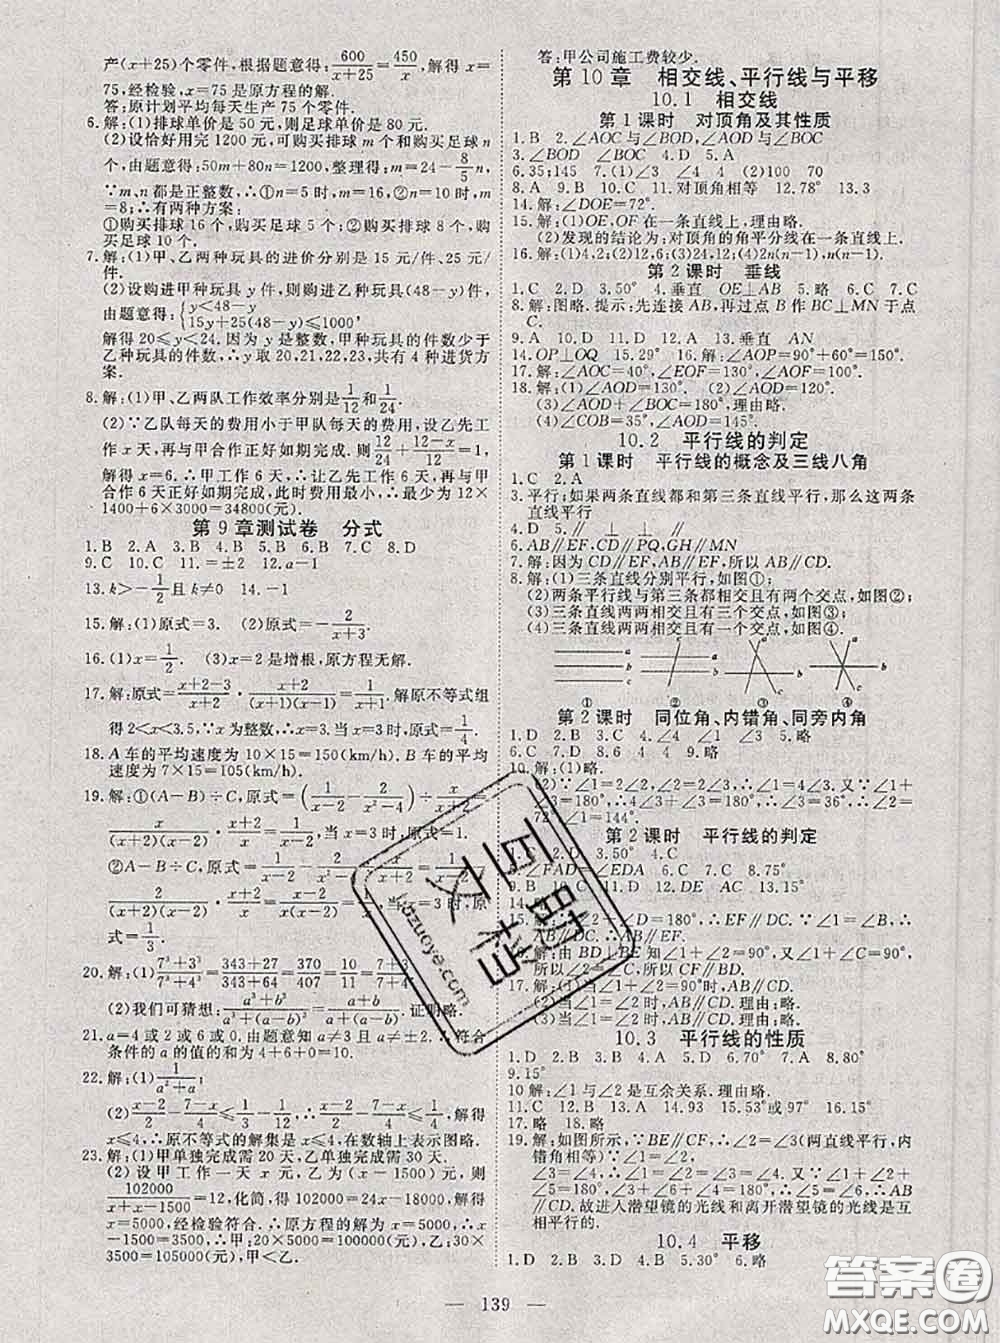 产(x+25)个零件,根据题意得:600/(x+25)=450/x,解得 x=
75,经检验,x=75是原方程的解.
答:原计划平均每天生产 75 个零件.
6.解:(1)排球单价是 50 元,则足球单价是 80 元.
(2)设恰好用完 1200 元,可购买排球 m 个和购买足球 n
个,由题意得:50m+80n=1200,整理得:m=24-8/5n,
∵m、n 都是正整数,∴①n=5 时,m=16,②n=10 时,m
=8;∴有两种方案:
①购买排球 16 个,购买足球 5 个;②购买排球 8 个,购
买足球 10 个.
7.解:(1)甲、乙两种玩具的进价分别是 15元/件、25元/
件.
(2)设购进甲种玩具 y 件,则购进乙种玩具(48-y)件,
由题意得:{y<48-y 15y+25(48-y)≤1000,
解得 20≤y<24.因为 y 是整数,甲种玩具的件数少于
乙种玩具的件数,∴y 取 20,21,22,23,共有 4 种进货方
案.
8.解:(1)甲、乙两队工作效率分别是1/12和1/24.
(2)∵乙队每天的费用小于甲队每天的费用,设乙先工
作 x 天,再与甲合作正好如期完成,则12/24+(12-x)/12=1,
解得 x=6.∴甲工作 6 天,∴让乙先工作 6 天,再与甲
合作 6 天正好如期完成,此时费用最小,最少为 12×
1400+6×3000=34800(元).
第 9 章测试卷 分式
1.B 2.A 3.B 4.B 5.B 6.B 7.C 8.D
9.C 10.C 11.=±2 12.a-1
13.k>-1/2且 k≠0 14.-1
15.解:(1)原式=3. (2)原式=-2/(x+3).
16.(1)x=1/2. (3)x=2 是增根,原方程无解.
17.解:原式=(x+2-3)/(x+2)·(x+2)/((x+1)(x-1))=1/(x+1).解原不等式组
得 2<x<3.5,∵x 为整数,∴x=3.当 x=3 时,原式=1/4.
18.A 车的平均速度为 10×15=150(km/h).B 车的平均
速度为 7×15=105(km/h).
19.解:①(A-B)÷C,原式=(1/(x-2)-2/(x²-4))÷x/(x+2)=
x/((x+2)(x-2))·(x+2)/x=1/(x-2),当 x=3 时,原式=1.
②A-B÷C,原式=1/(x-2)-
2/((x+2)(x-2))·(x+2)/x 当 x=3 时,原
式=1/3.
20.解:(1)(7³+3³)/(7³+4³)=(343+27)/(343+64)=370/407=10/11=(7+3)/(7+4)
(2)我们可猜想:(a³+b³)/(a³+(a-b)³)=(a+b)/(a+(a-b)).证明略.
21.a=4 或 2 或 6 或 0,由题意知 a≠0 且 a≠±2.∴符合
条件的 a 的值的和为 4+6+0=10.
22.解:(1)1/(a²+a)
(2)(x-2)/2-(7-x)/4≤1/2-1/4 ∴(x-2)/2-(7-x)/4≤1/4 解得
x≤4,∴原不等式的解集是 x≤4,在数轴上表示图略.
23.解:(1)甲单独完成需 20 天,乙单独完成需 30 天.
(2)设甲工作一天 x 元,乙为(x-1500)元,则
102000/(x+x-1500)=12,化简,得 102000=24x-18000,解得
x=5000,经检验符合.∴原方程的解为 x=5000,∴x-
1500=3500(元).甲:20×5000=100000(元),乙:30×
3500=105000(元),甲<乙.
答:甲公司施工费较少.
第 10 章 相交线、平行线与平移
10.1 相交线
第 1 课时 对顶角及其性质
1.B 2.∠AOC 与∠BOD,∠AOD 与∠BOC
3.∠BOD ∠BOC 4.D 5.A
6.35;145 7.(1)∠3 ∠4 (2)100 70
8.A 9.B 10.C 11.对顶角相等 12.78° 13.3
14.解:∠DOE=72°.
15.解:(1)OE,OF 在一条直线上,理由略.
(2)发现的结论为:对顶角的角平分线在一条直线上.
16.(1)4,2;(2)6,12,6;(3)12,24,12;(4)2n(n-1)
第 2 课时 垂线
1.C 2.D 3.50° 4.垂直 OE⊥AB 5.C 6.C 7.C
8.解:图略.提示:先连接 AB,再过点 B 作 BC⊥MN 于点
C.
9.D 10.A 11.D 12.A 13.垂直 AN
14.OP⊥OQ 15.29° 16.解:∠AOP=90°+60°=150°.
17.解:∠AOC=40°,∠EOF=130°,∠AOF=100°.
18.解:(1)∠AOD=130°. (2)∠AOD=120°.
(3)∠AOD+∠BOC=180°,理由略.
(4)∠COB=35°,∠AOD=145°.
10.2 平行线的判定
第 1 课时 平行线的概念及三线八角
1.C 2.A
3.平行;如果两条直线都和第三条直线平行,那么这两条
直线平行
4.D 5.
6.AB∥EF,CD∥PQ,GH∥MN
7.解:因为 CD∥EF,AB∥EF,所以 AB∥CD.
8.解:(1)三条直线分别平行,如图①;
(2)两条平行线与第三条都相交且有两个交点,如图②;
(3)三条直线两两相交且有三个交点,如图③;
(4)三条直线两两相交且有一个交点,如图④.
a b c a b c a b c a b c
① ② ③ ④
第 2 课时 同位角、内错角、同旁内角
1.D 2.B 3.C 4.∠4 ∠1 ∠2 5.略
6.C 7.D 8.6 4 4 9.略
10.解:(1)略.
(2)∵∠1=2∠2,∠2=2∠3,∴∠1=4∠3.又∵∠1+
∠3=180°,∴4∠3+∠3=180°,∴∠3=36°,∴∠2=
72°,∠1=144°.
第 2 课时 平行线的判定
2.D 3.50° 4.C
5.∠FAD=∠EDA 6.B 7.C 8.75°
10.C 11.A 12.DE AC 13.15°
15.解:∵∠2+∠D=180°,∴EF∥DC.∵∠1=∠B,∴EF
∥AB,∴AB∥CD.
所以∠2=∠C.∴CF∥BD.∴AB∥CD.
17.解:(1)当∠1=∠2 时,AB∥CD.理由:略;
(2)当∠1=∠2 时,AB∥CD.理由:略;
(3)当∠1=∠2 时,AB∥CD.理由:略.
10.3 平行线的性质
1.D 2.B 3.B 4.A 5.D 6.70° 7.A 8.80°
9.15°
10.解:∠1 与∠2 是互余关系.理由略.
11.C 12.B 13.A 14.93 15.53°或 97° 16.15°
17.略 18.略
19.解:如图所示,∵BE∥CF,∴∠2=∠3(两直线平行,内
错角相等)∵∠1+∠5+∠2=180°,∠6+
∠3+∠4=180°,∴∠1+∠5+∠2=∠6+∠3+∠4,∵
∠1=∠5,∠6=∠4,∠2=∠3,∴∠5+∠2=∠3+∠6,∴AB
∥CD.故进入潜望镜的光线和离开潜望镜的光线是互
相平行的.
10.4 平移
1.D 2.D 3.B 4.D 5.30° 6.略
— 139 —
百盟文档
Lbzuoye.com
答案圈
MXQE.COM